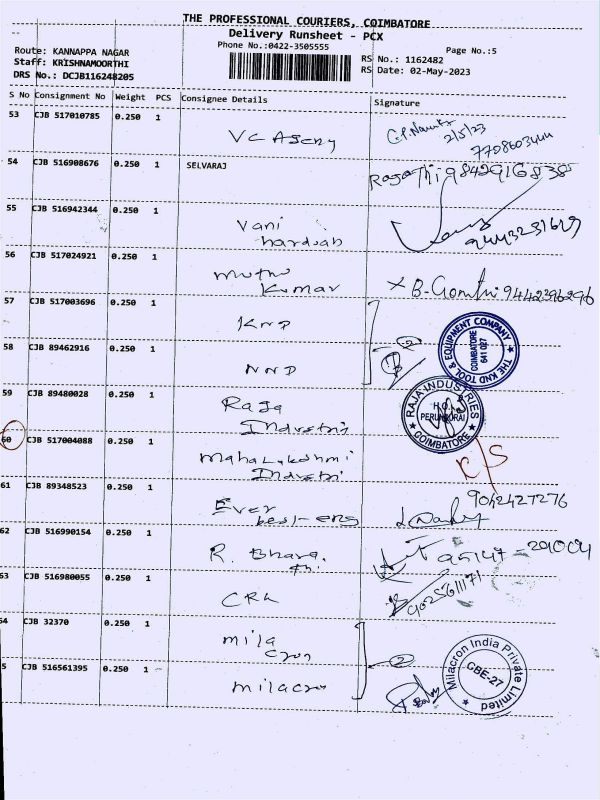 THE PROFESSIONAL COURIERS, COIMBATORE
Delivery Runsheet - PCX
Phone No.:0422-3505555
Page No.:5
Route: KANNAPPA NAGAR
Staff: KRISHNAMOORTHI
DRS No.: DCJB116248205
RS No.: 1162482
RS Date: 02-May-2023
S No Consignment No Weight PCS Consignee Details Signature
53 CJB 517010785 0.250 1
VC Ageny
2/5/23
54 CJB 516908676 0.250 1 SELVARAJ
9842916838
55 CJB 516942344 0.250 1
Vani
9443231619
56 CJB 517024921 0.250 1
Muthu
Kumar
9442396296
57 CJB 517003696 0.250 1
KND
2
THE KND TOOL & EQUIPMENT COMPANY
COIMBATORE
641 027
58 CJB 89462916 0.250 1
NND
59 CJB 89480028 0.250 1
Raja
Industris
RAJA INDUSTRIES
H.O.
PERUNDURAI
COIMBATORE
60 CJB 517004088 0.250 1
Mahalakshmi
Industri
R/S
61 CJB 89348523 0.250 1
Ever
best-eng
9042427276
62 CJB 516990154 0.250 1
R. Bhara.
thi
95147-29004
63 CJB 516980055 0.250 1
CRL
9025611171
64 CJB 32370 0.250 1
mila
cron
2
5 CJB 516561395 0.250 1
milacron
Milacron India Private Limited
CBE-27